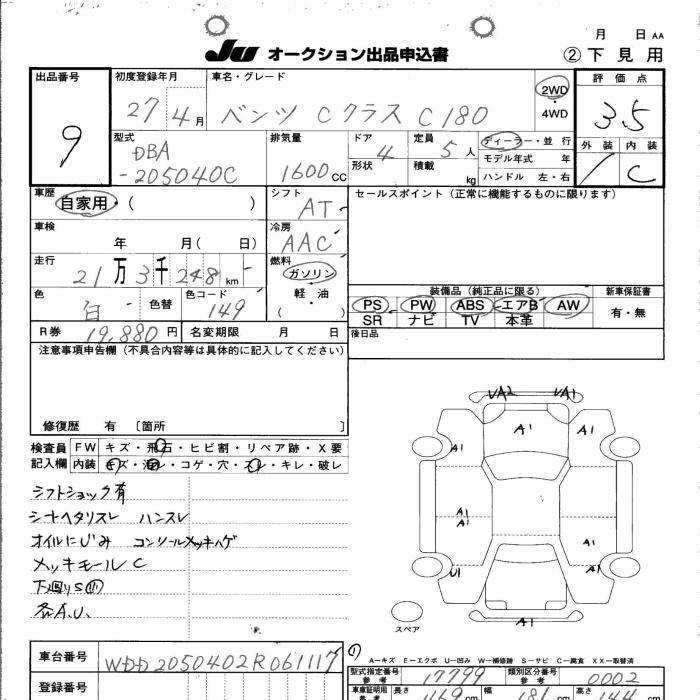 月 日 AA
JU オークション出品申込書
② 下見用
出品番号
9
初度登録年月
27年4月
車名・グレード
ベンツ Cクラス C180
2WD
・
4WD
評価点
3.5
外装 内装
C
型式
DBA
-205040C
排気量
1600 CC
ドア 4
形状
定員 5 人
積載 kg
ディーラー・並行
モデル年式 年
ハンドル 左・右
車歴
自家用・( )
シフト
AT
セールスポイント(正常に機能するものに限ります)
車検
年 月( 日)
冷房
AAC
走行
21万3千248km
燃料
ガソリン
軽・油
( )
色
白
色替
色コード
149
装備品(純正品に限る)
PS PW ABS エアB AW
SR ナビ TV 本革
新車保証書
有・無
R券 19,880円
名変期限 月 日
後日品
注意事項申告欄(不具合内容等は具体的に記入してください)
修復歴 有 〔箇所 〕
検査員
記入欄
FW キズ・飛石・ヒビ割・リペア跡・X要
内装 キズ・汚レ・コゲ・穴・スレ・キレ・破レ
シフトショック有
シートヘタリスレ ハンスレ
オイルにじみ コンソールメッキハゲ
メッキモールC
下廻りS
各A.U.
UA2 UA1
A1 A1
A1
A1
A1
A1
U1
A1
A1
スペア
A1
A－キズ E－エクボ U－凹み W－補修跡 S－サビ C－腐食 XX－取替済
車台番号
WDD2050402R061117
型式指定番号
参考
17799
類別区分番号
参考
0002
登録番号
車庫証明用
参考
長さ 469 cm
幅 181 cm
高さ 144 cm